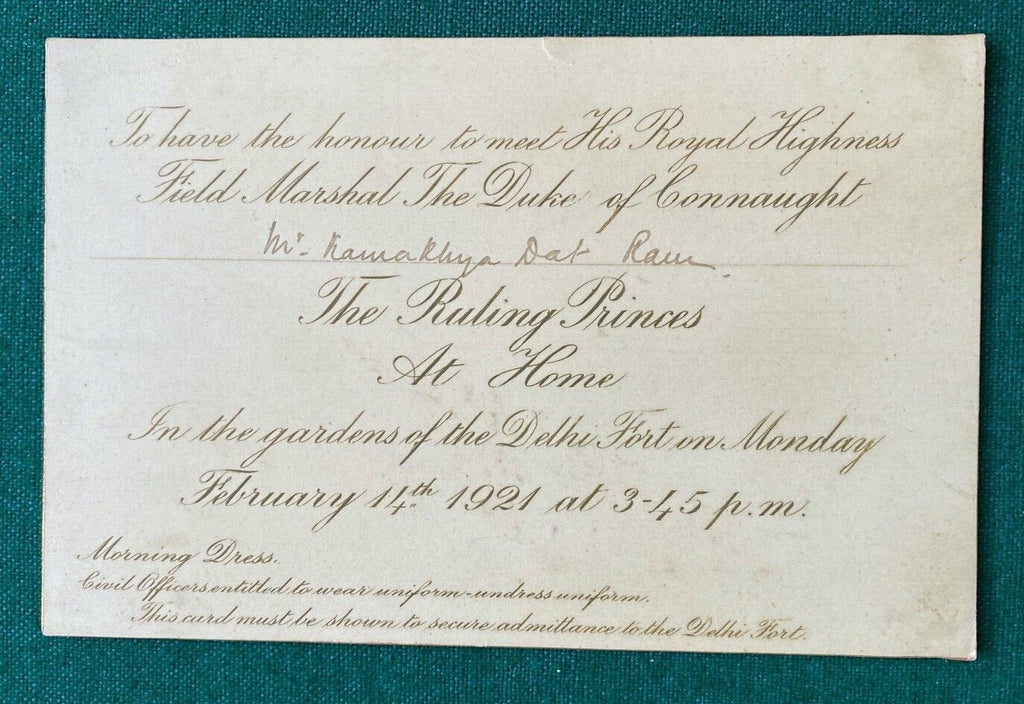 To have the honour to meet His Royal Highness
Field Marshal The Duke of Connaught
Mr. Kamakhya Dat Ram
The Ruling Princes
At Home
In the gardens of the Delhi Fort on Monday
February 14th 1921 at 3-45 p.m.
Morning Dress.
Civil Officers entitled to wear uniform-undress uniform.
This card must be shown to secure admittance to the Delhi Fort.